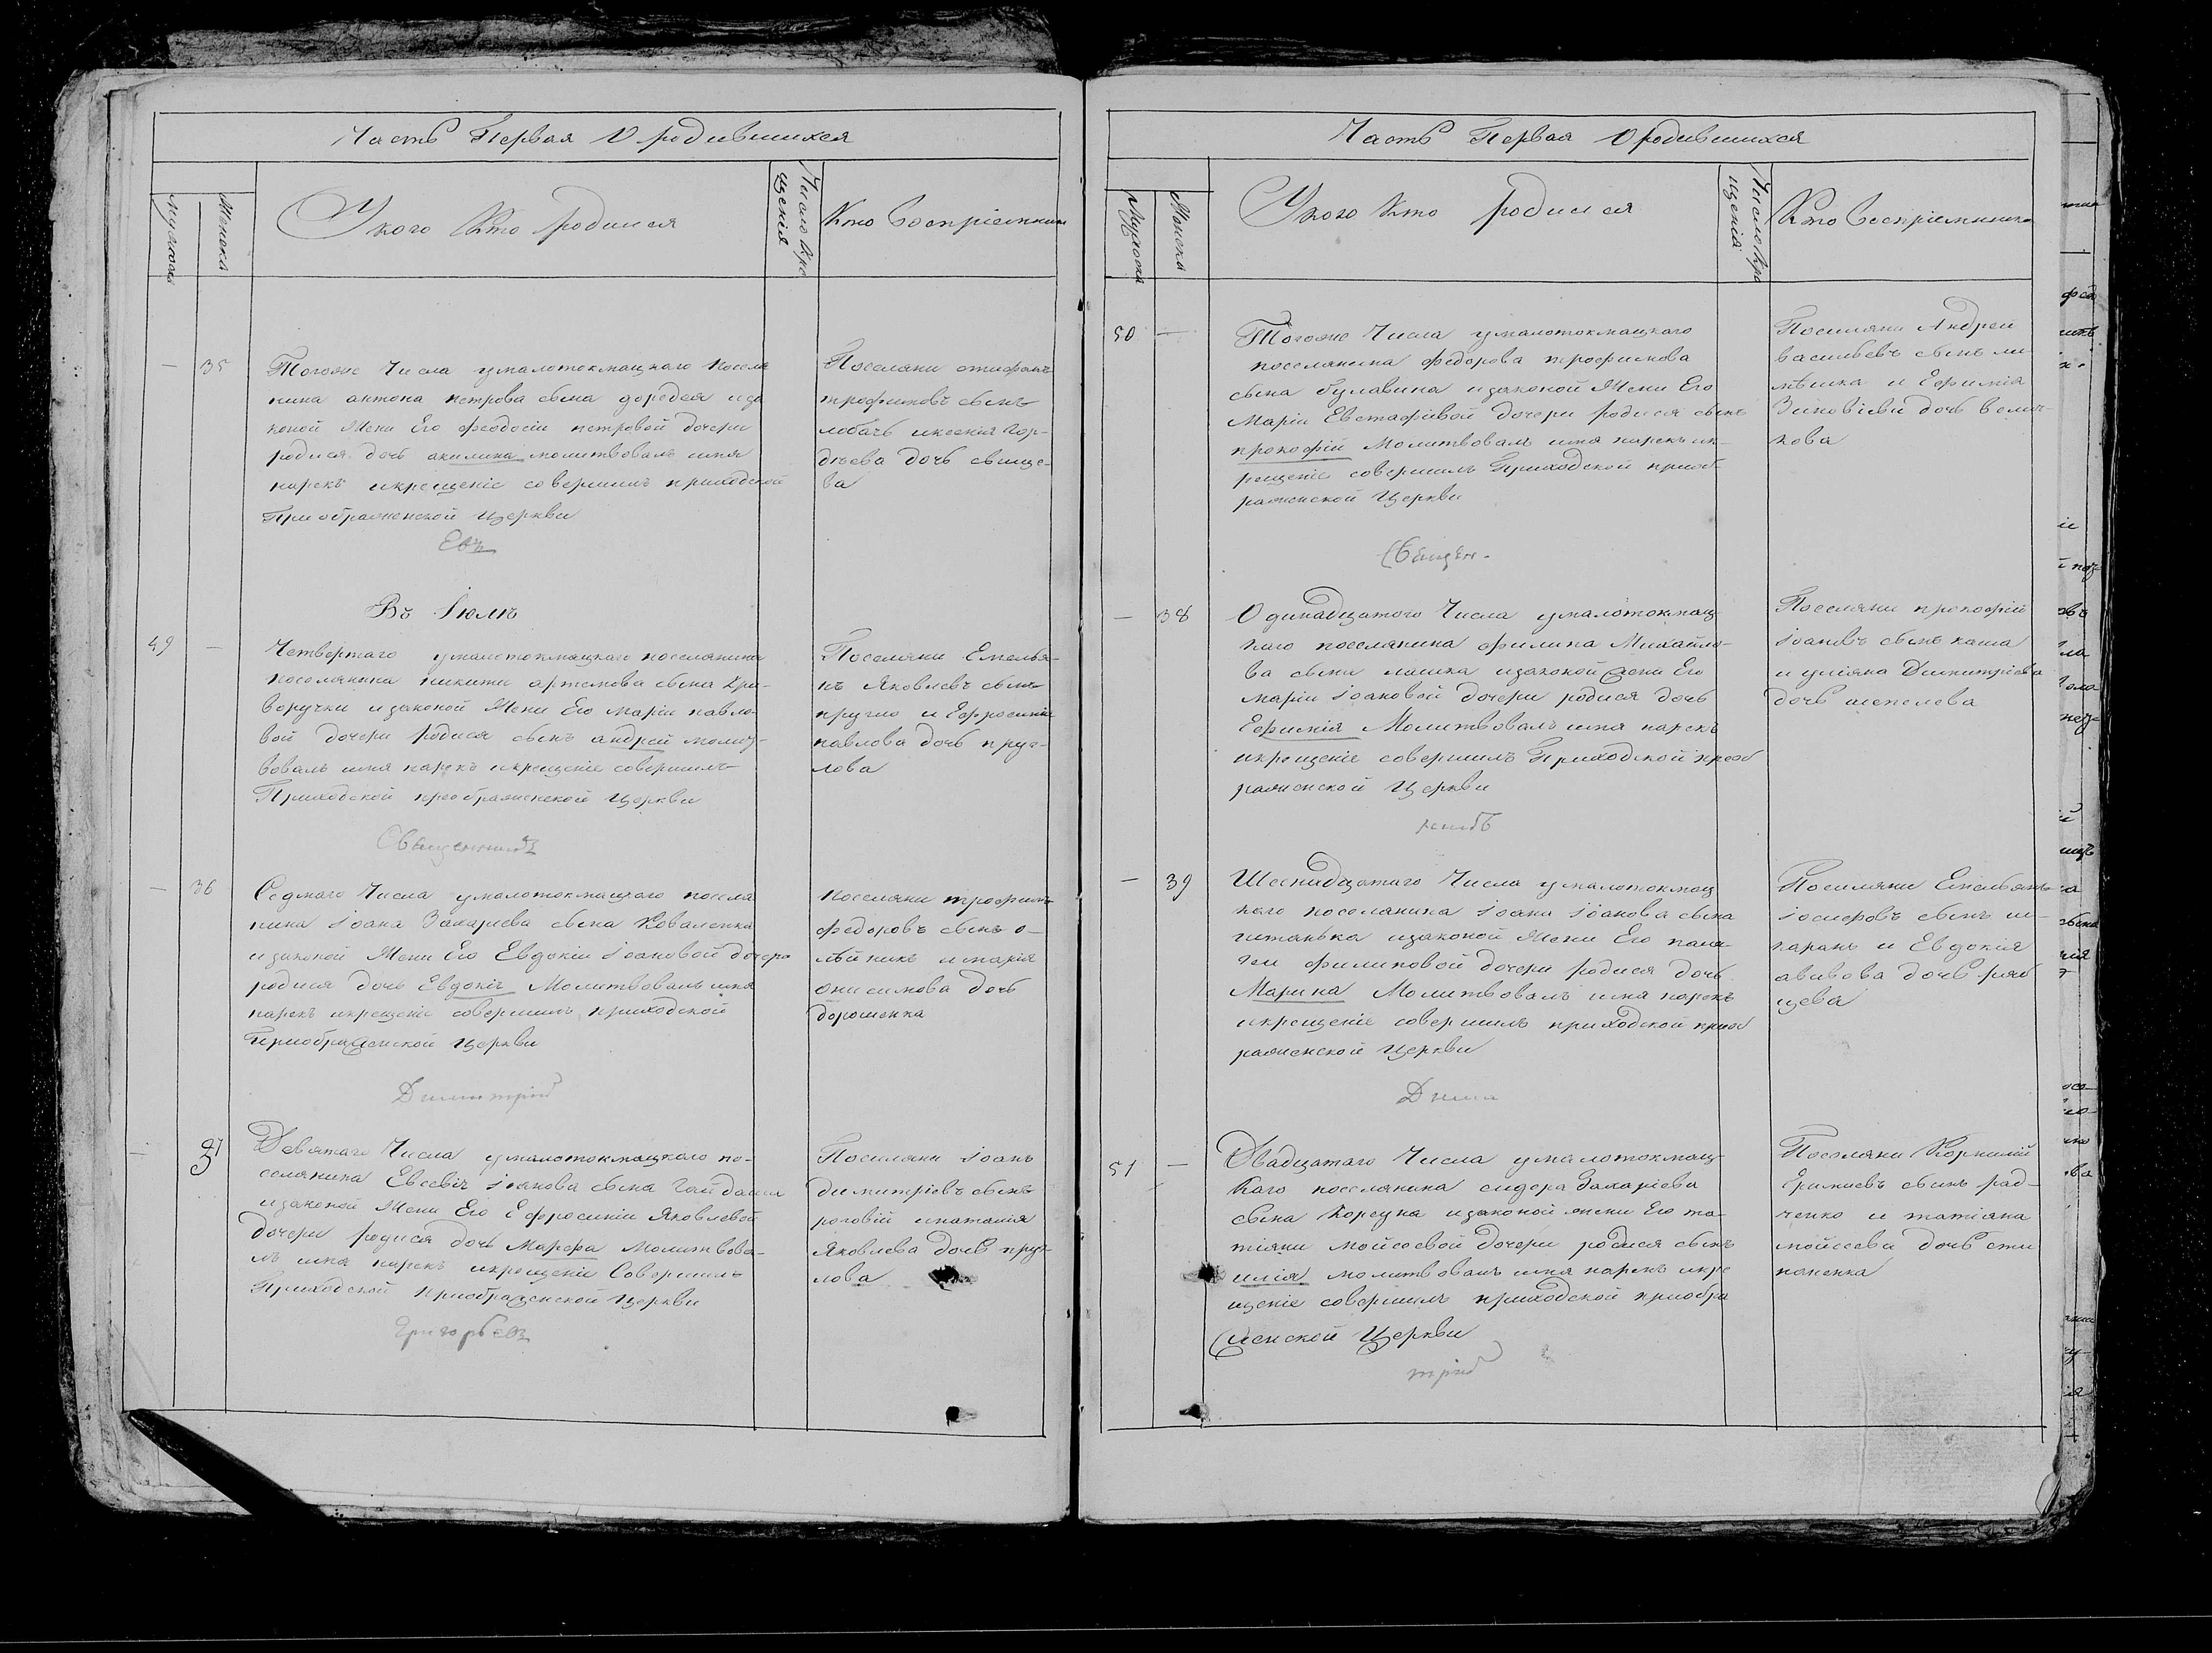 Часть Первая О родившихся
мужеска
Женска
У кого Кто родился
Число кре
щенія
Кто Воспріемники
— 35
Тогоже Числа умалотокмацкаго посели
нина антона петрова сына дордея иза
коной Жени Его феодосіи петровой дочери
родися дочь акилина молитвовалъ имя
нарекъ икрещеніе совершилъ приходской
Приображенской Церкви
Поселяни стифанъ
трофимовъ сынъ
лобачь иксенія Гор-
дѣева дочь свище-
ва
Въ Іюлѣ
49 —
Четвертаго умалотокмацкаго поселянина
поселянина никити артемова сына Кри-
воручки изаконой Жени Его маріи павло-
вой дочери родися сынъ андрей молит-
вовалъ имя нарекъ икрещеніе совершилъ
Приходской преображенской Церкви
Поселяни Емелья-
нъ Яковлевъ сынъ
пругло и Ефросинія
павлова дочь пруг-
лова
Священникъ
— 36
Седмаго Числа умалотокмацкаго поселя
нина Іоана Захаріева сына Коваленка
изаконой Жени Его Евдокіи Іоановой дочери
родися дочь Евдокія Молитвовалъ имя
нарекъ икрещеніе совершилъ приходской
Приображенской Церкви
поселяни трофимъ
федоровъ сынъ о-
лѣйникъ имарія
онисимова дочь
дорошенка
Димитрій
— 37
Девятаго Числа умалотокмацкаго по-
селянина Евсевія іоанова сына Гайдаша
изаконой Жени Его Ефросиніи Яковлевой
дочери родися дочь Марфа Молитвова-
лъ имя нарекъ икрещеніе Совершилъ
Приходской приображенской Церкви
Поселяни іоанъ
димитріевъ сынъ
роговій инаталія
Яковлева дочь пруг-
лова
Григорьевъ
Часть Первая О родившихся
Мужеска
Женска
У кого Кто родился
Число кре
щенія
Кто Воспріемники
50 —
Тогоже Числа умалотокмацкаго
поселянина федорова трофимова
сына булавина изаконой Жени Его
Маріи Евстафіевой дочери родися сынъ
прокофій Молитвовалъ имя нарекъ ик-
рещеніе совершилъ Приходской приоб
раженской Церкви
Поселяни Андрей
васильевъ сынъ
и Ефимія
Зиновіеви дочь велич-
кова
Священ-
— 38
Одинадцатого Числа умалотокмац-
каго поселянина филипа Михайло-
ва сына лашка изаконой жени Его
маріи іоановой дочери родися дочь
Ефимія Молитвовалъ имя нарекъ
икрещеніе совершилъ Приходской преоб
раженской Церкви
Поселяни прокофій
іоановъ сынъ каша
и уліяна Димитріева
дочь шепелева
никъ
— 39
Шеснадцатаго Числа умалотокмац
каго поселянина іоана іоанова сына
читанька изаконой Жени Его пала-
геи филиповой дочери родися дочь
Марина Молитвовалъ имя нарекъ
икрещеніе совершилъ приходской приоб
раженской Церкви
Поселяни Емельянъ
іосифовъ сынъ ши-
гаранъ и Евдокія
авивова дочь ряб
цева
Дими
51 —
Двадцатаго Числа умалотокмац-
каго поселянина сидора Захаріева
сына Корсуна изаконой жени Его та-
тіяни мойсеевой дочери родися сынъ
илія молитвовалъ имя нарекъ икре
щеніе совершилъ приходской приобра
женской Церкви
Поселяни Корнилій
Еримиевъ сынъ рад-
ченко и татіана
мойсеева дочь сти
паненка
трій